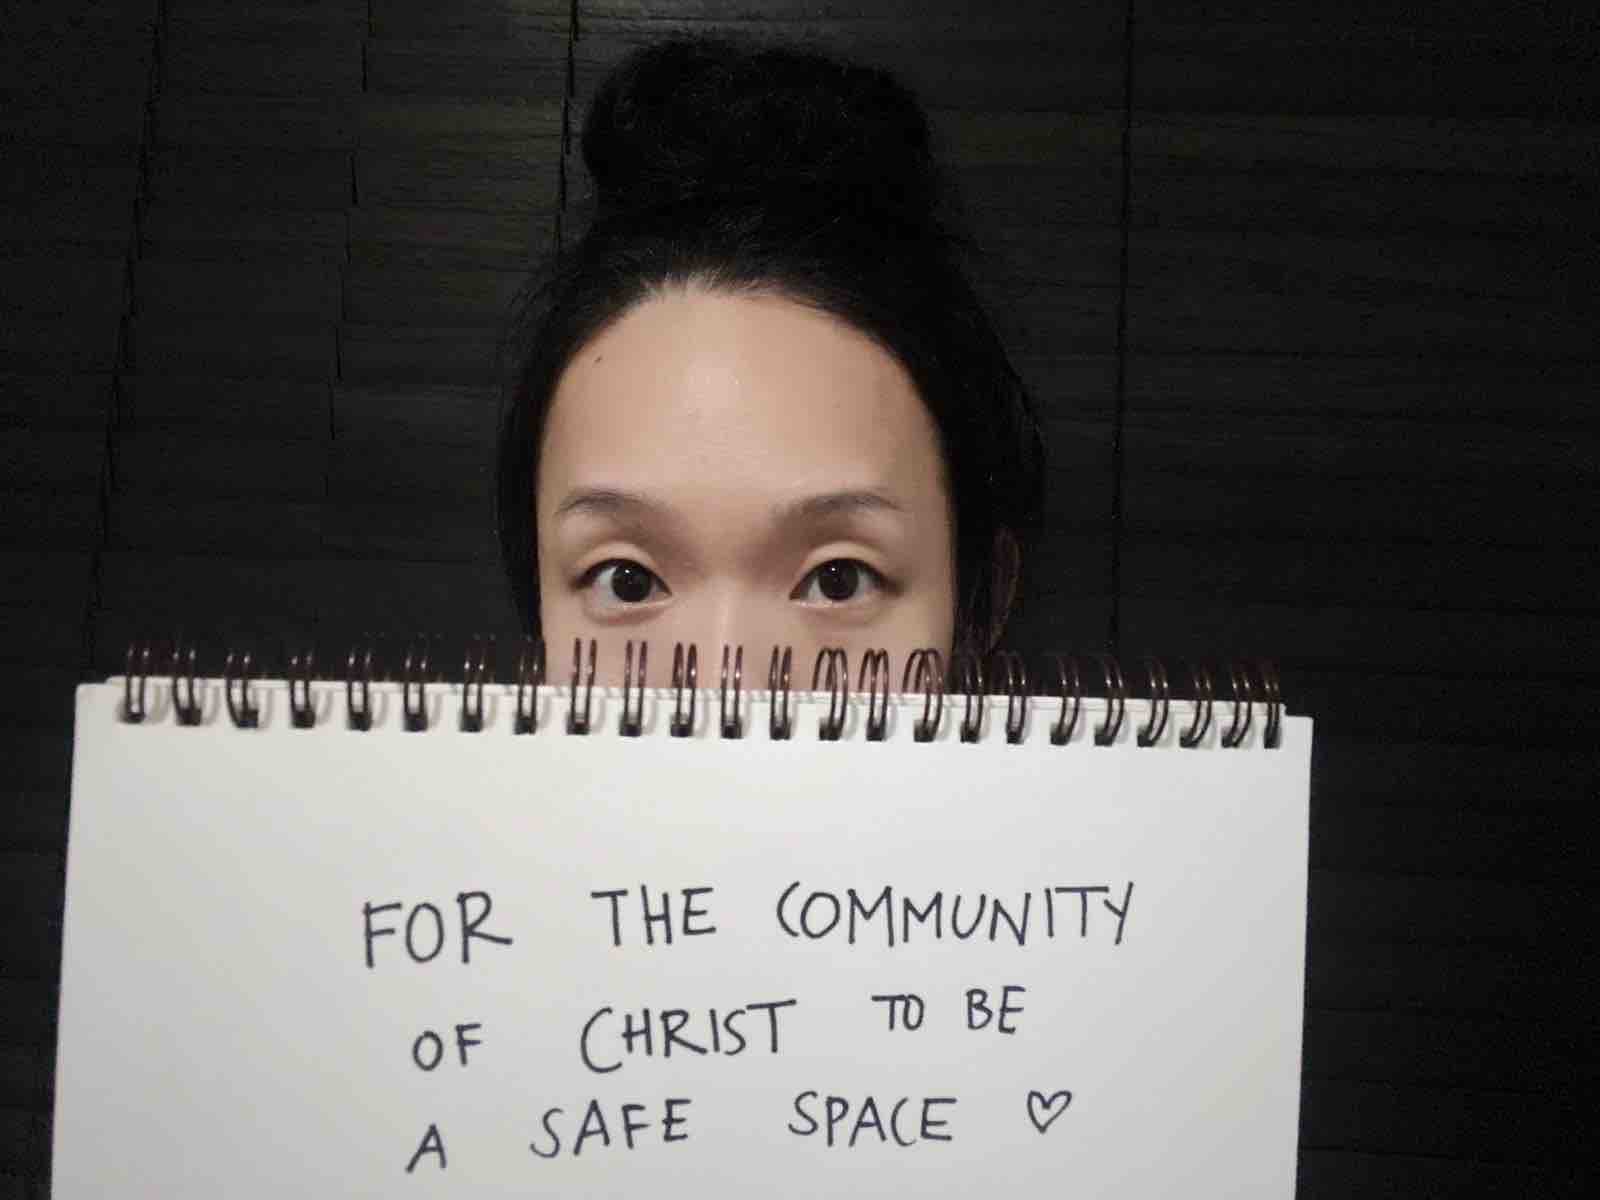 FOR THE COMMUNITY
OF CHRIST TO BE
A SAFE SPACE ♡